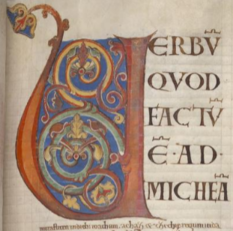 VERBV̄
QVOD
FACTV̄
E·AD·
MICHEA